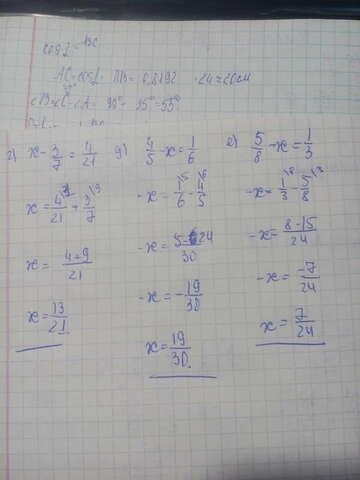 AC = cosL · AB = 0,8192 · 24 ≈ 20см
г) x - 3/7 = 4/21
x = 4/21 + 3/7
x = 4+9/21
x = 13/21
д) 4/5 - x = 1/6
-x = 1/6 - 4/5
-x = 5-24/30
-x = -19/30
x = 19/30.
е) 5/8 - x = 1/3
-x = 1/3 - 5/8
-x = 8-15/24
-x = -7/24
x = 7/24